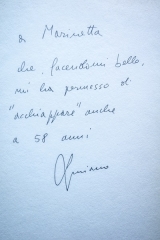 a Marinetta
che, facendomi bello,
mi ha permesso di
"acchiappare" anche
a 58 anni